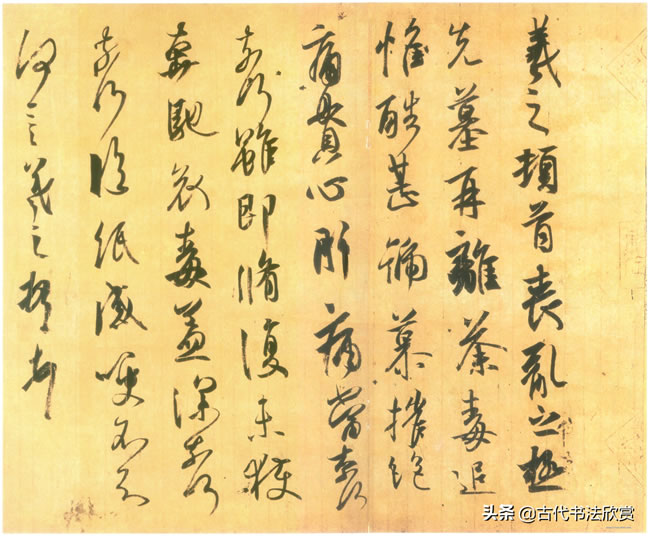 羲之頓首喪亂之極
先墓再離荼毒追
惟酷甚號慕摧絕
痛貫心肝痛當奈何
奈何雖即脩復未獲
奔馳哀毒益深奈何
奈何臨紙感哽不知
何言羲之頓首
头条 @古代书法欣赏